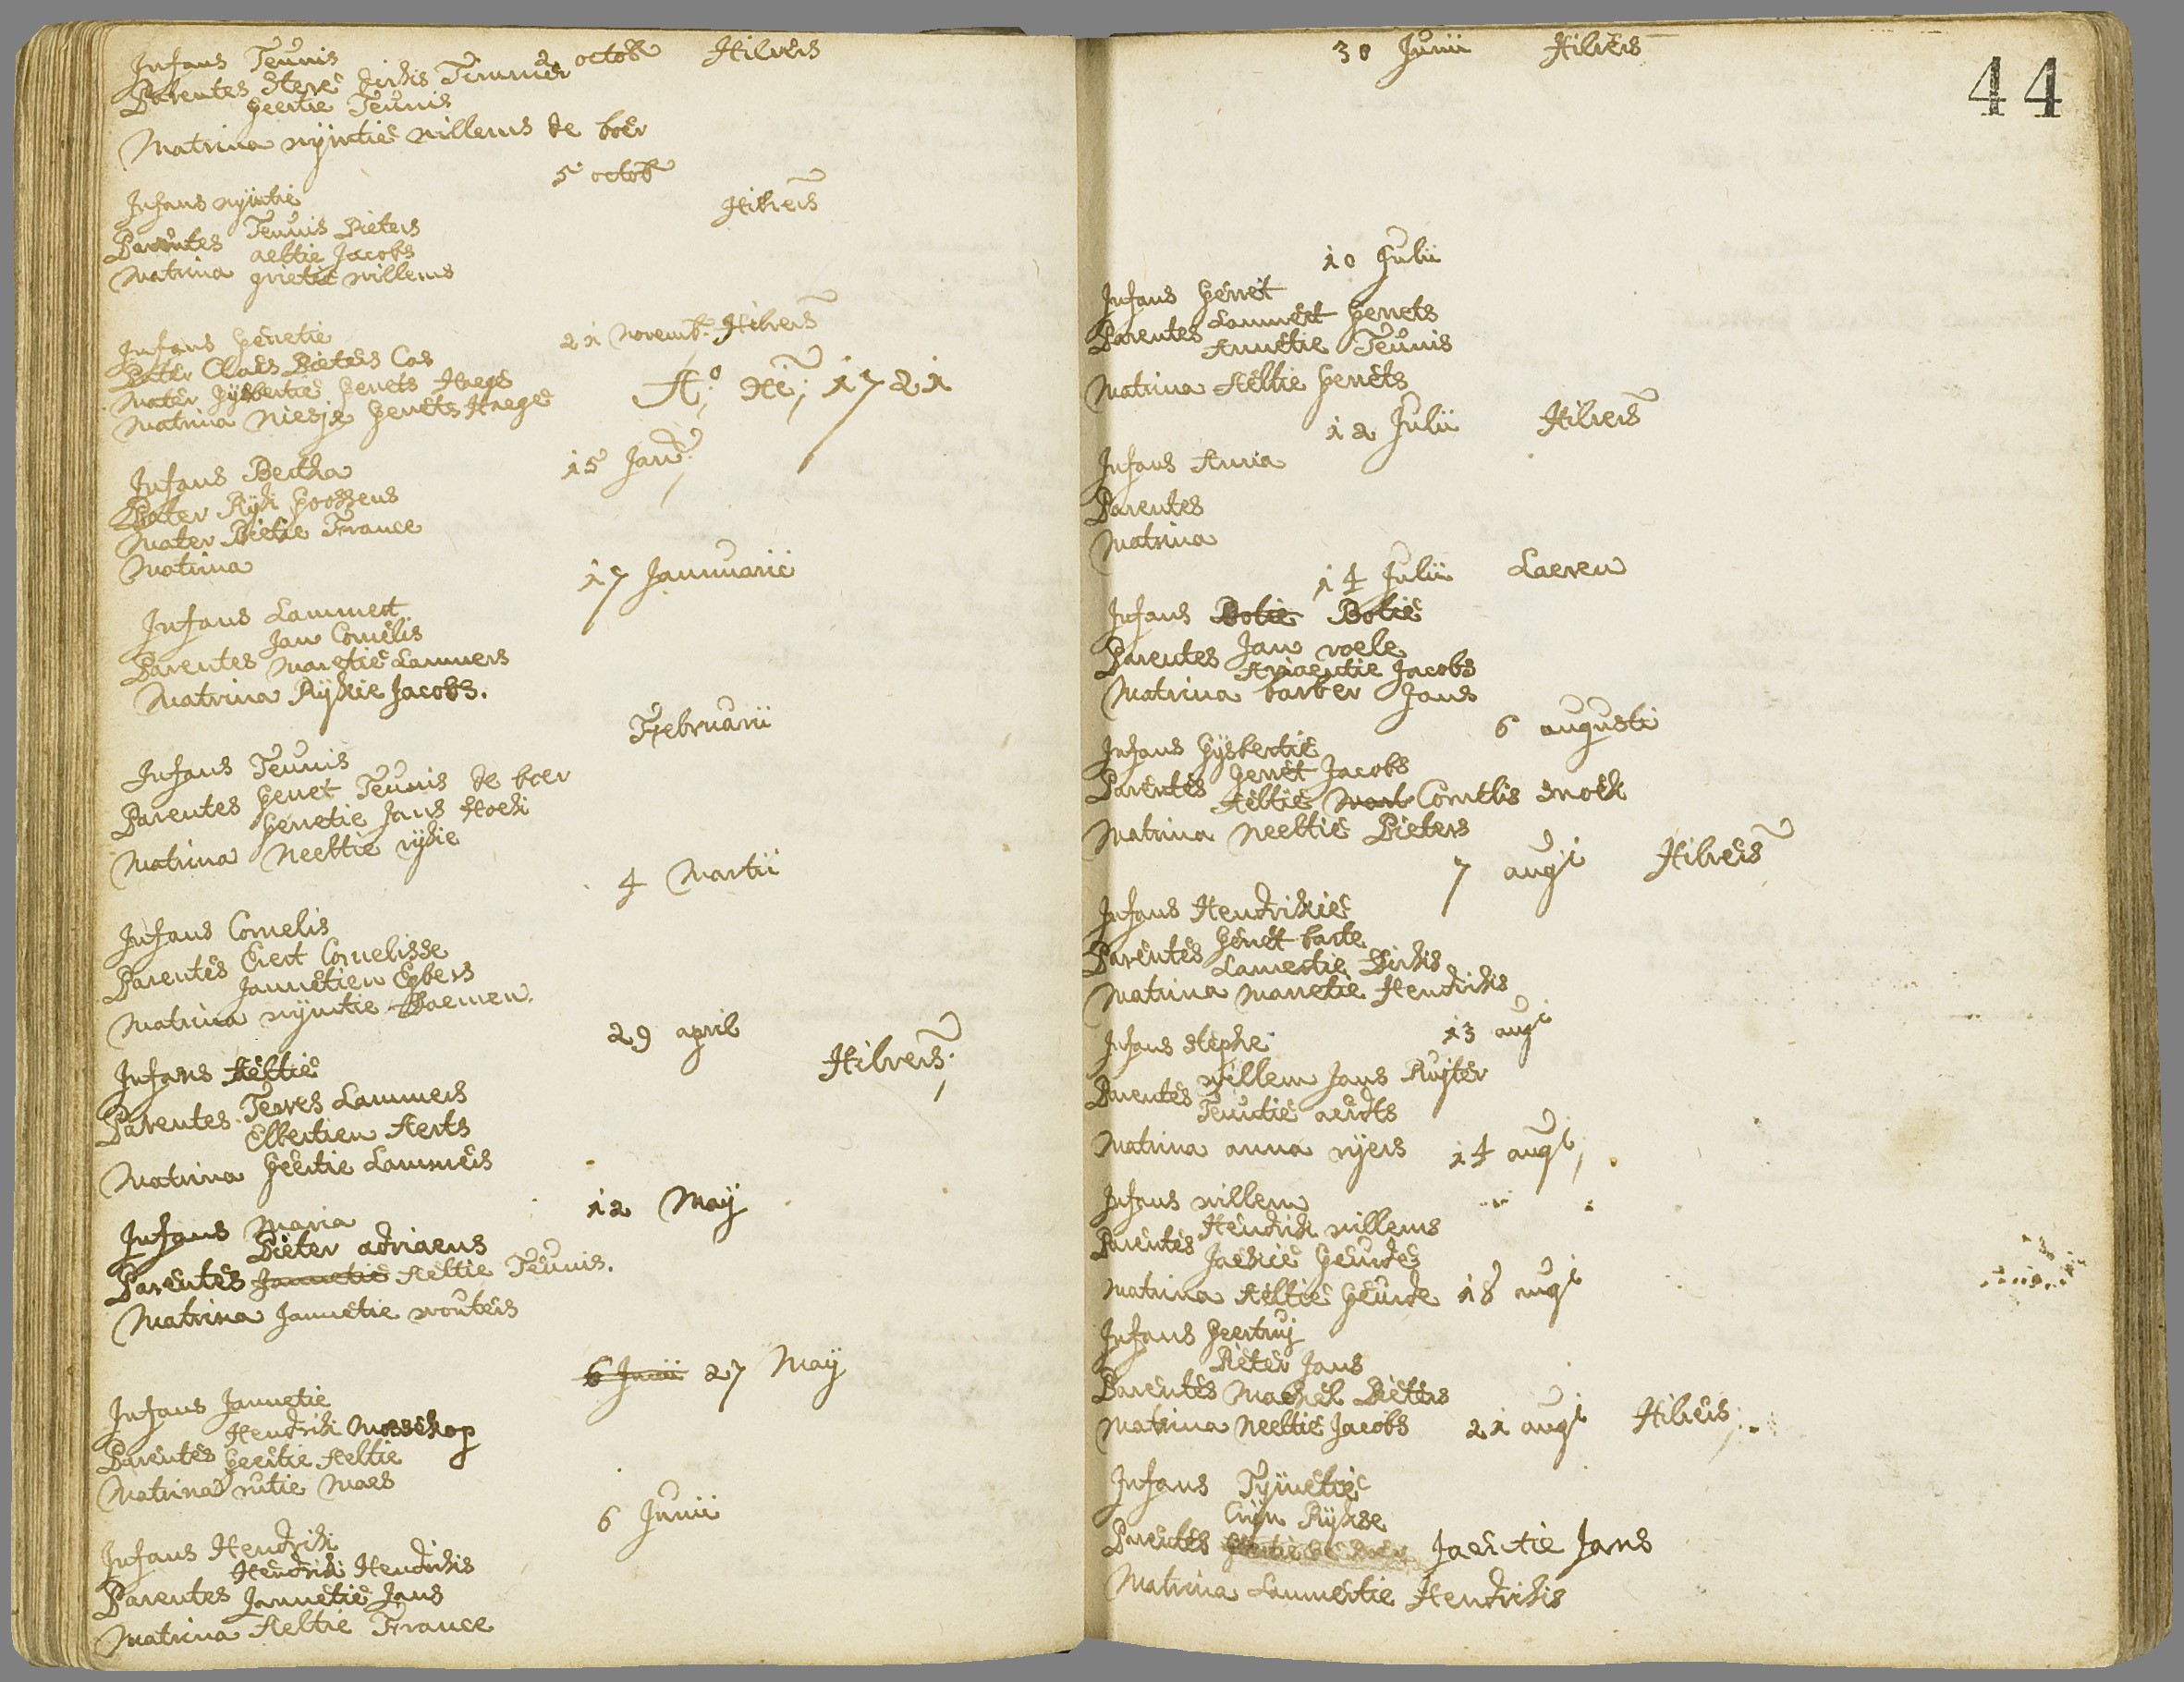 2 octob Hilvers
Infans Teunis
Parentes Steve dirkis Timmer
geertie Teunis
Matrina wijntie willems de boer
5 octob
Hilvers
Infans wijntie
Parentes Teunis Pieters
aeltie Jacobs
Matrina grietie willems
21 Novemb: Hilvers
Infans Gerretie
Pater Claes Pieters Cos
Mater Gijsbertie Gerrets Haege
Matrina Niesje Gerrets Haege
A.o 1721
15 Jan:
Infans Bertha
Pater Rijk Goossens
Mater Pietie France
Matrina
17 Januuarii
Infans Lammert
Jan Cornelis
Parentes Marretie Lammers
Matrina Rijkie Jacobs.
Februarii
Infans Teunis
Parentes Gerret Teunis de boer
Gerretie Jans Hoek
Matrina Neeltie rijkie
4 Martii
Infans Cornelis
Parentes Evert Cornelisse
Jannetien Egbers
Matrina wijntie
29 april
Hilvers
Infans Aeltie
Parentes Lammers
Elbertien Aerts
Matrina Geertie Lammers
12 Maij
Infans Maria
Pieter adriaens
Parentes Jannetie Aeltie Teunis.
Matrina Jannetie wouters
6 Junii 27 Maij
Infans Jannetie
Hendrik Mosschop
Parentes Geertie Aeltie
Matrina rutie Maes
6 Junii
Infans Hendrik
Hendrik Hendrikis
Parentes Jannetie Jans
Matrina Aeltie France
30 Junii Hilvers
44
10 Julii
Infans Gerret
Parentes Lammert Gerrets
Annetie Teunis
Matrina Aeltie Gerrets
12 Julii Hilvers
Infans Anna
Parentes
Matrina
14 Julii Laeren
Infans Botie Botie
Parentes Jan roele
Jacobs
Matrina barber Jans
6 augusti
Infans Gijsbertie
Parentes Gerret Jacobs
Aeltie Cornelis
Matrina Neeltie Pieters
7 augi Hilvers
Infans Hendrikie
Parentes Gerret barte
Lamertie Dirkis
Matrina Marretie Hendrikis
13 augi
Infans stephe
Parentes willem Jans Ruijter
Teuntie aerdts
Matrina anna rijers
14 augi
Infans willem
Parentes Hendrik willems
Jaekie Geurde
Matrina Aeltie Geurde
18 augi
Infans Geertruij
Pieter Jans
Parentes Machel Pieters
Matrina Neeltie Jacobs
21 augi Hilvers
Infans Tijmetie
Crijn Rijkse
Parentes Jaentie Jans
Matrina Lammertie Hendrikis